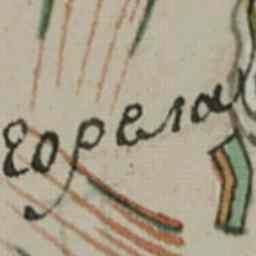 еорела